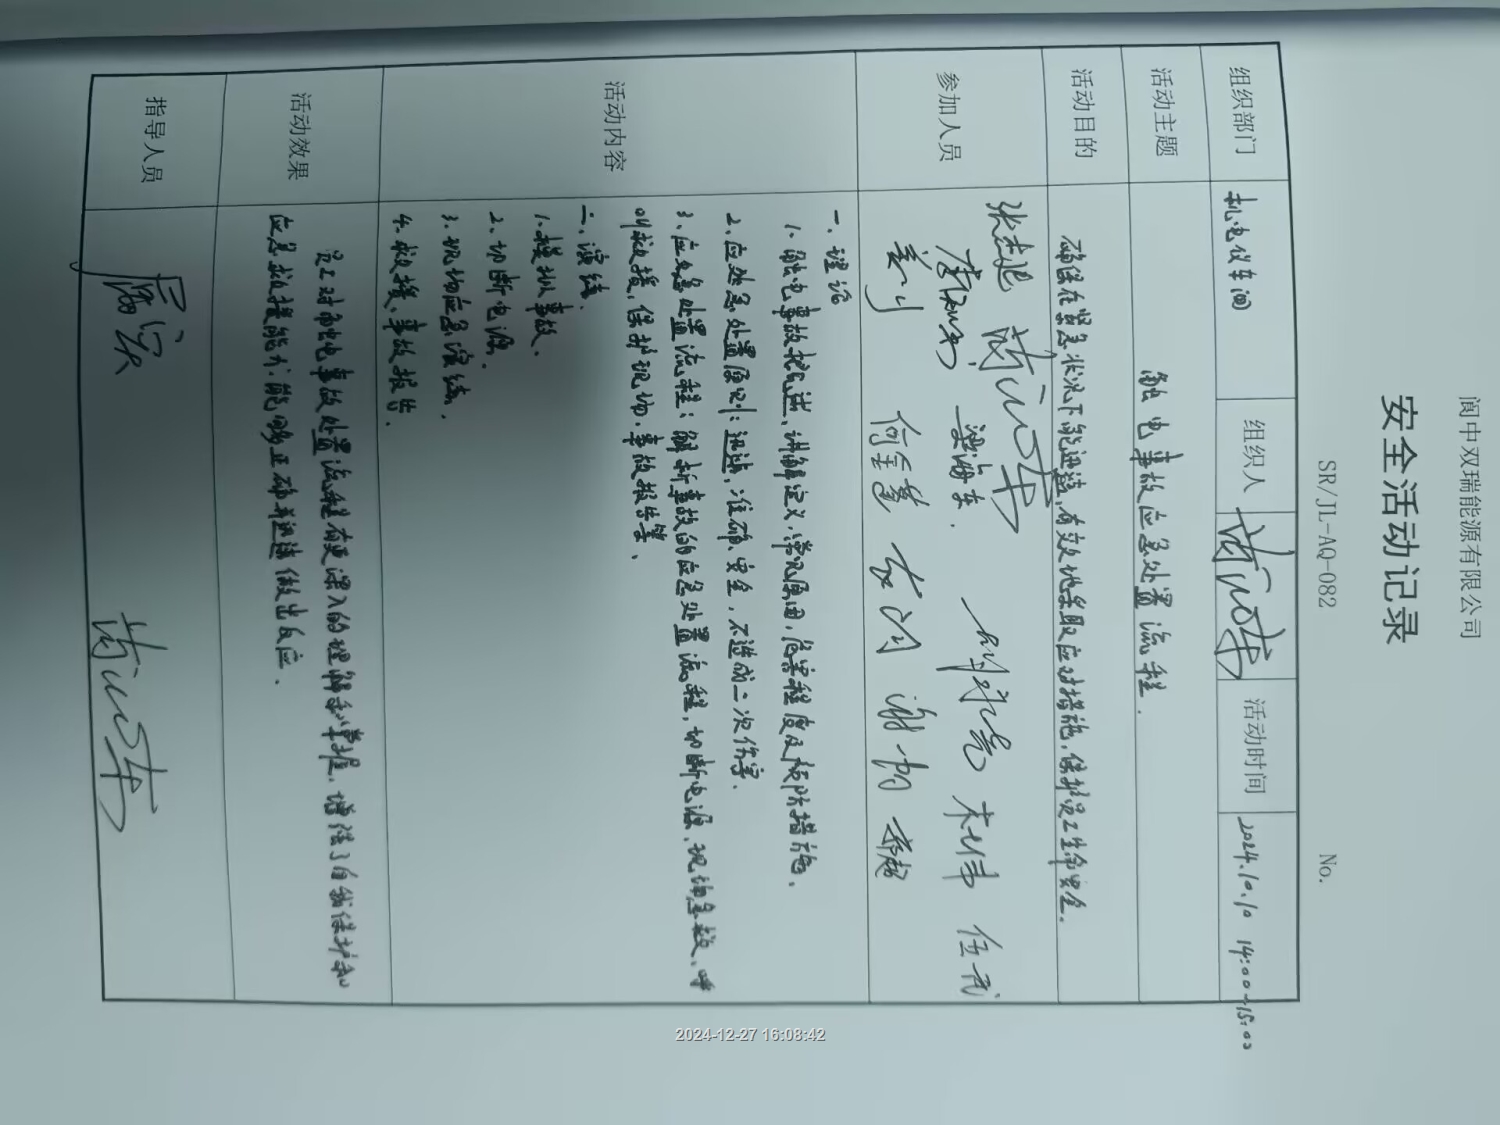 阆中双瑞能源有限公司
安全活动记录
SR/JL-AQ-082 No.
组织部门 机电仪车间 组织人 活动时间 2024.10.10 14:00-15:00
活动主题 触电事故应急处置流程.
活动目的 确保在紧急状况下能迅速,有效地采取应对措施,保护员工生命安全.
参加人员
梁海东.
何全慧
伍武
活动内容
一、理论
1、触电事故概述、讲解定义,常见原因,危害程度及预防措施.
2、应处急处置原则:迅速,准确、安全,不造成二次伤害.
3、应急处置流程:解析事故的应急处置流程,切断电源、现场急救、呼
叫救援、保护现场、事故报告等、
二、演练.
1.模拟事故、
2、切断电源.
3、现场应急演练.
4、救援、事故报告.
活动效果
员工对触电事故处置流程有更深入的理解和掌握,增强了自我保护和
应急救援能力.能够正确并迅速做出反应.
指导人员
2024-12-27 16:08:42